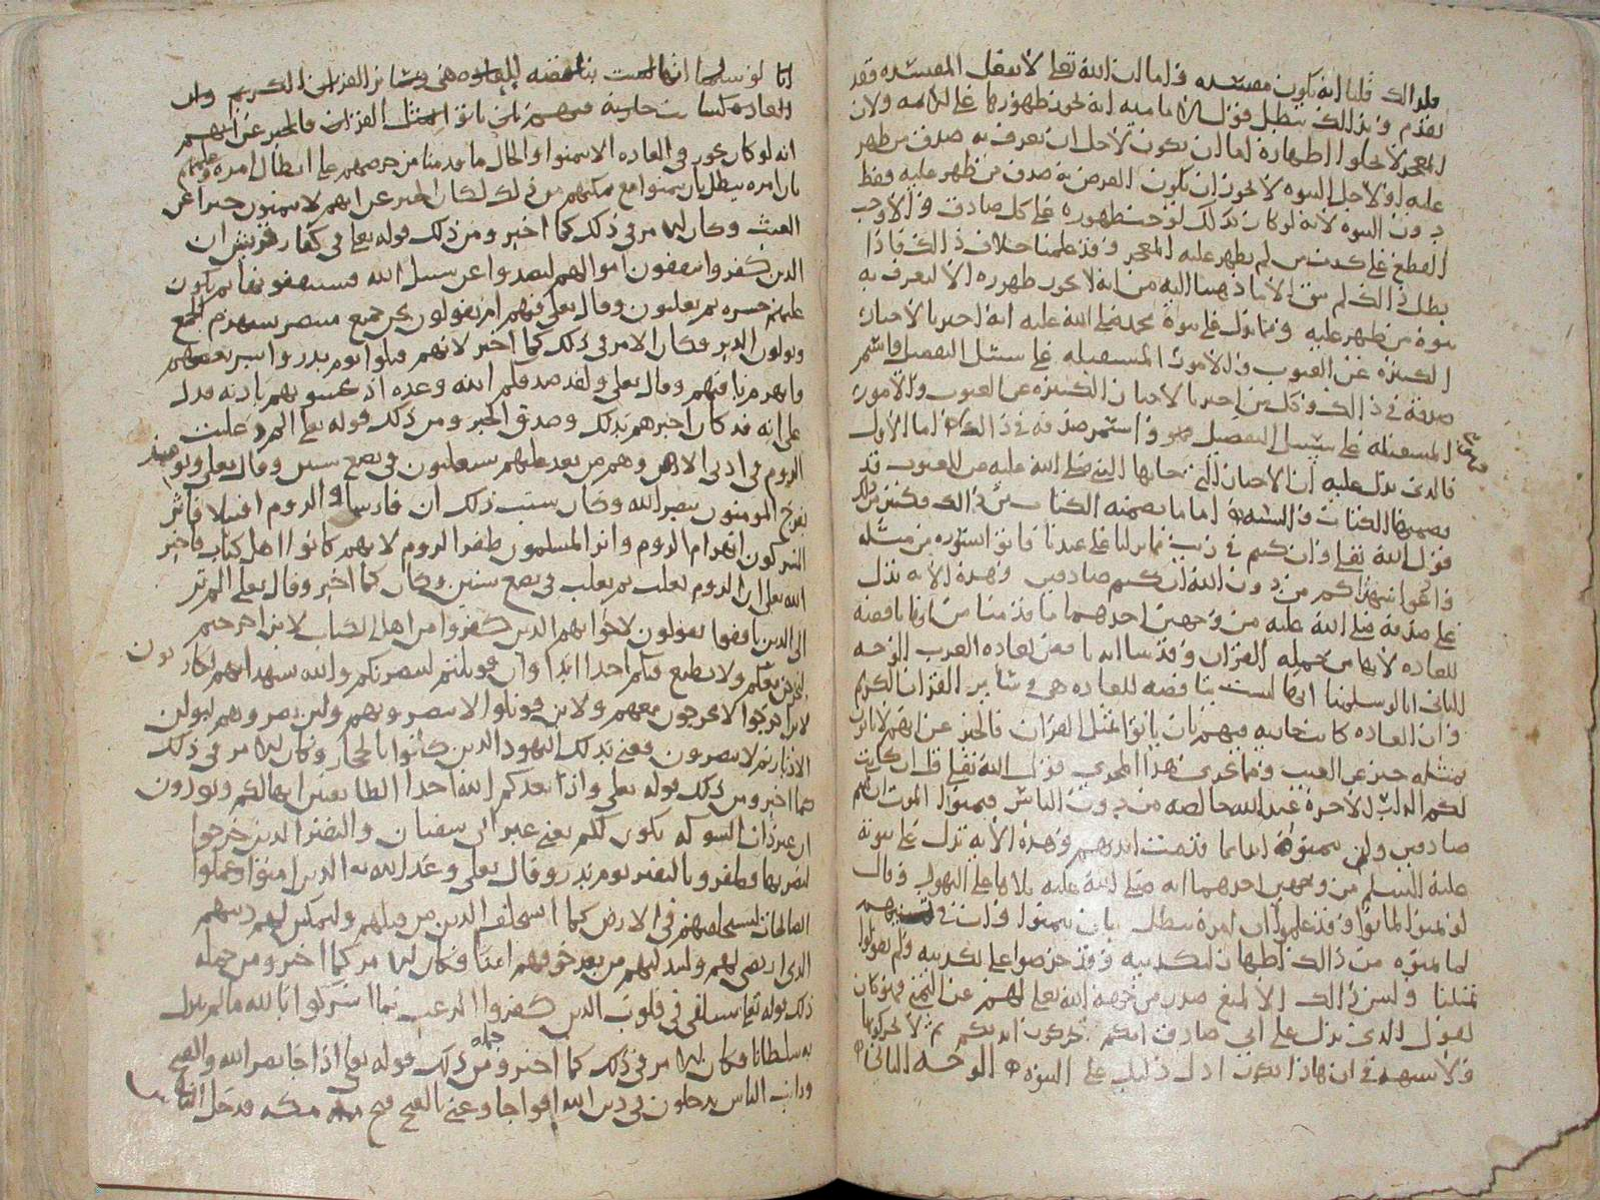 فلذلك قلنا انه يكون مفسده واما ان الله تعلى لا يفعل المفسده فقد
تقدم وبذلك يبطل قول الاماميه انه يجوز ظهورها على الائمه ولان
المعجز لا يخلوا اظهاره اما ان يكون لاجل ان يعرف به صدق من ظهر
عليه او لاجل النبوه لا يجوز ان يكون الغرض به صدق من ظهر عليه فقط
دون النبوه لانه لو كان كذلك لوجب ظهوره على كل صادق ولاوجب
القطع على كذب من لم يظهر عليه المعجز وقد علمنا خلاف ذلك فاذا
بطل ذلك لم يبق الا ما ذهبنا اليه من انه لا يجوز ظهوره الا ليعرف به
نبوة من ظهر عليه ومما يدل على نبوة محمد صلى الله عليه انه اخبر بالاخبار
الكثيره عن الغيوب والامور المستقبله على سبيل التفصيل واستمر
صدقه في ذلك وكل من اخبر بالاخبار الكثيره عن الغيوب والامور
المستقبله على سبيل التفصيل واستمر صدقه في ذلك اما الاول
فالذي يدل عليه ان الاخبار التي جا بها النبي صلى الله عليه من الغيوب قد
تضمنها الكتاب والسنه اما ما تضمنه الكتاب من ذلك فكثير من ذلك
قول الله تعلى وان كنتم في ريب مما نزلنا على عبدنا فاتوا بسوره من مثله
وادعوا شهداكم من دون الله ان كنتم صادقين وهذه الايه تدل
على صدقه صلى الله عليه من وجهين احدهما ما قدمنا من انها ناقضه
للعاده لانها من جمله القران وقد بينا انه ناقض لعاده العرب الوجه
الثاني انا لو سلمنا انها ليست بناقضه للعاده هي وسائر القران الكريم
وان العاده كانت جاريه فيهم بان ياتوا بمثل القران فالخبر عن انهم لا ياتون
بمثله خبر عن الغيب ومما يجري هذا المجرى قول الله تعلى قل ان كانت
لكم الدار الاخره عند الله خالصه من دون الناس فتمنوا الموت ان كنتم
صادقين ولن يتمنوه ابدا بما قدمت ايديهم وهذه الايه تدل على نبوته
عليه السلم من وجهين احدهما انه صلى الله عليه تلاها على اليهود وقال
لو تمنوا لماتوا وقد علموا ان امره يبطل بان يتمنوا
تمنينا وليس ذلك الا لمنع صدر من جهه الله تعلى لهم عن التمني فهو كان
يقول الذي يدل على اني صادق انكم تحركون ايديكم ثم لا تحركونها
ولا شبهه في ان هذا يكون ادل دليل على النبوه الوجه الثاني
انا لو سلمنا انها ليست بناقضه للعاده هي وسائر القران الكريم وان
العاده كانت جاريه فيهم بان ياتوا بمثل القران فالخبر عن انهم
انه لو كان يجوز في العاده الا يتمنوا والحال ما قدمنا من حرصهم على ابطال امره وعلمهم
بان امره يبطل بان يتمنوا مع تمكنهم من ذلك لكان الخبر عن انهم لا يتمنون خبرا عن
الغيب وكان الامر في ذلك كما اخبر ومن ذلك قوله تعلى في كفار قريش ان
الذين كفروا ينفقون اموالهم ليصدوا عن سبيل الله فسينفقونها ثم تكون
عليهم حسره ثم يغلبون وقال تعلى فيهم ام يقولون نحن جميع منتصر سيهزم الجمع
ويولون الدبر فكان الامر في ذلك كما اخبر لانهم قتلوا يوم بدر واسر بعضهم
وانهزم باقيهم وقال تعلى ولقد صدقكم الله وعده اذ تحسونهم باذنه فدل
على انه قد كان اخبرهم بذلك وصدق الخبر ومن ذلك قوله تعلى الم غلبت
الروم في ادنى الارض وهم من بعد غلبهم سيغلبون في بضع سنين وقال تعلى ويومئذ
يفرح المومنون بنصر الله وكان سبب ذلك ان فارسا والروم اقتتلا فاثر
المشركون انهزام الروم واثر المسلمون ظفر الروم لانهم كانوا اهل كتاب فاخبر
الله تعلى ان الروم تغلب ثم تغلب في بضع سنين وكان كما اخبر وقال تعلى الم تر
الى الذين نافقوا يقولون لاخوانهم الذين كفروا من اهل الكتاب لئن اخرجتم
لنخرجن معكم ولا نطيع فيكم احدا ابدا وان قوتلتم لننصرنكم والله يشهد انهم لكاذبون
لئن اخرجوا لا يخرجون معهم ولئن قوتلوا لا ينصرونهم ولئن نصروهم ليولن
الادبار ثم لا ينصرون يعني بذلك اليهود الذين كانوا بالحجاز وكان الامر في ذلك
كما اخبر ومن ذلك قوله تعلى واذ يعدكم الله احدى الطائفتين انها لكم وتودون
ان غير ذات الشوكه تكون لكم يعني عير ابي سفيان والنفير الذين خرجوا
لنصرتها وظفروا بالنفير يوم بدر وقال تعلى وعد الله الذين امنوا وعملوا
الصالحات ليستخلفنهم في الارض كما استخلف الذين من قبلهم وليمكنن لهم دينهم
الذي ارتضى لهم وليبدلنهم من بعد خوفهم امنا فكان الامر كما اخبر ومن جمله
ذلك قوله تعلى سنلقي في قلوب الذين كفروا الرعب بما اشركوا بالله ما لم ينزل
به سلطانا فكان الامر في ذلك كما اخبر ومن جمله ذلك قوله تعلى اذا جا نصر الله والفتح
ورايت الناس يدخلون في دين الله افواجا وعني بالفتح فتح مكه فدخل الناس